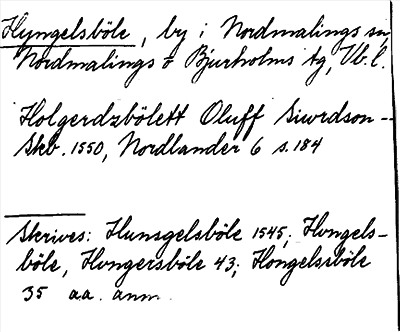 Hyngelsböle, by i Nordmalings sn,
Nordmalings o Bjurholms tg, Vb.l.
Holgerdzbölett Oluff Siwrdson -
Skb. 1550, Nordlander 6 s. 184
Skrives: Hunsgelsböle 1545; Hongels-
böle, Hongersböle 43; Hongelsböle
35 a.a. anm.